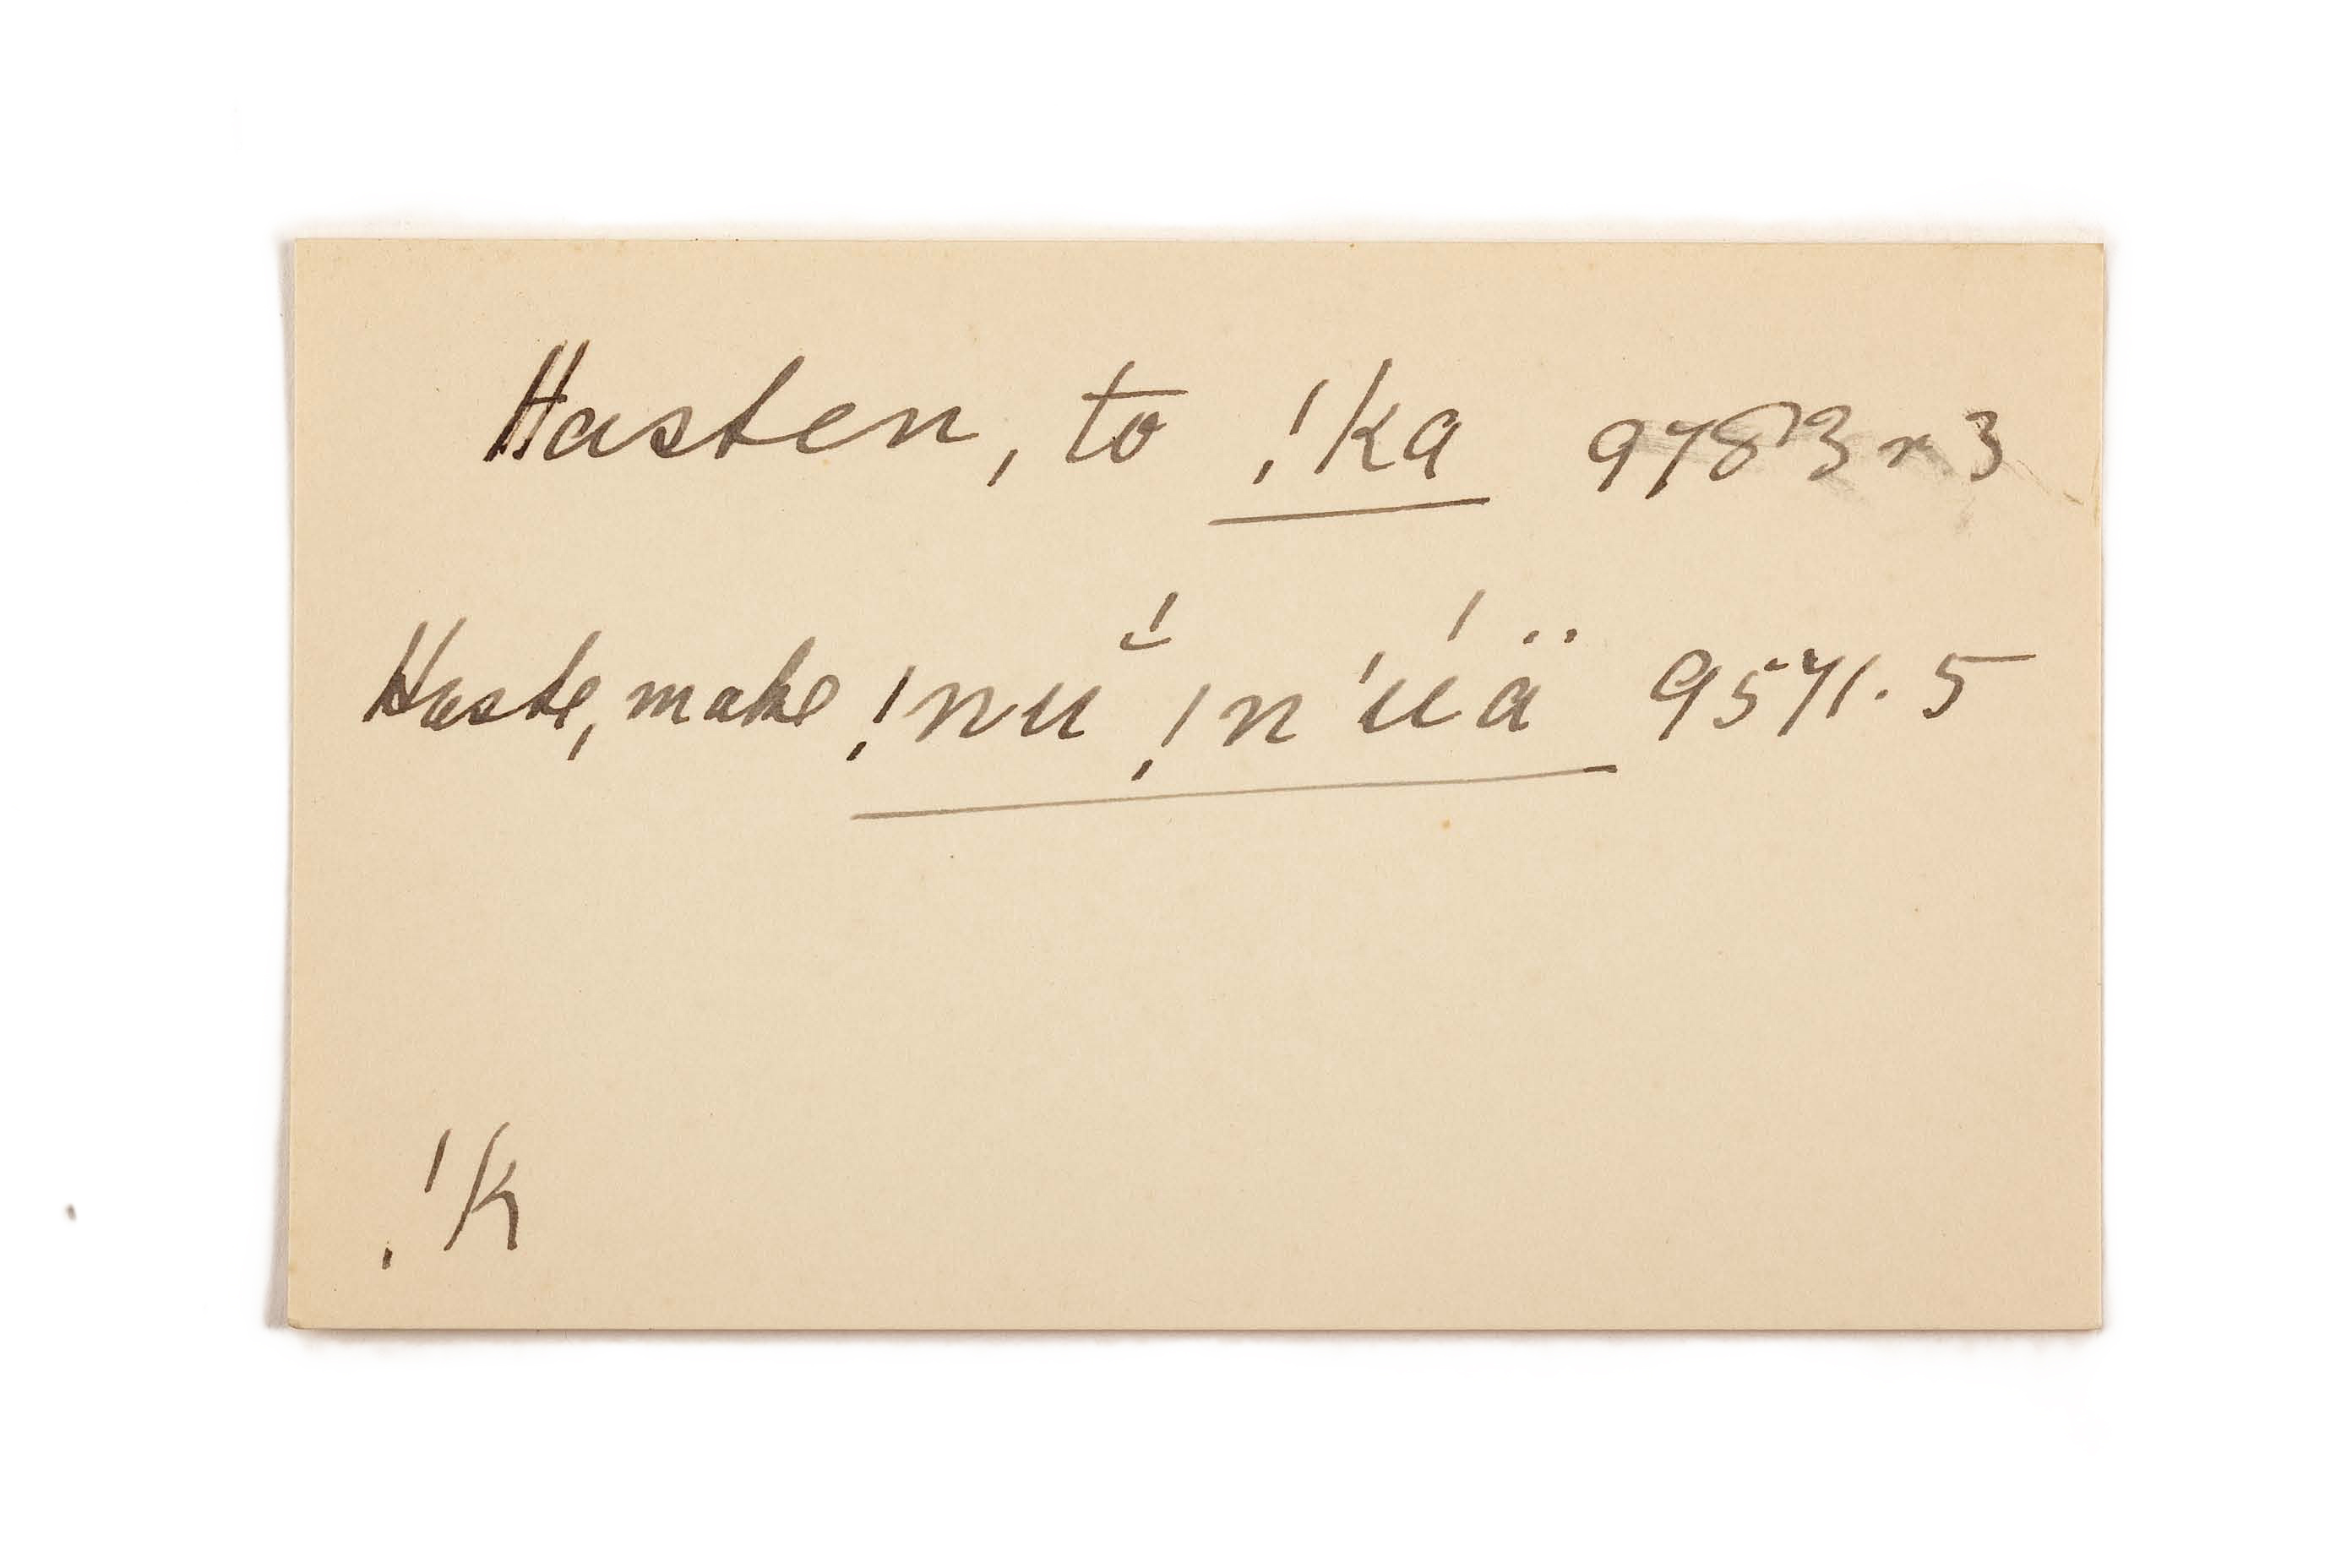 Hasten, to !ka 9783 r. 3
Haste, make !nŭ́ !n'úä 9571. 5
!k